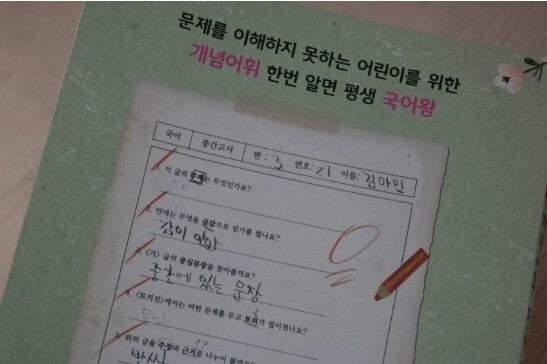 문제를 이해하지 못하는 어린이를 위한
개념어휘 한번 알면 평생 국어왕
국어 중간고사 반: 3 번호: 21 이름: 김아인
1. 이 글의 주제는 무엇인가요?
2. 안네는 무엇을 글감으로 일기를 썼나요?
감이 안와
3. (가) 글의 중심문장을 찾아볼까요?
중간에 있는 문장
4. (토끼전)에서는 어떤 문제를 두고 토의가 벌어졌나요?
5. 위의 글을 주장과 근거로 나누어 볼까요?